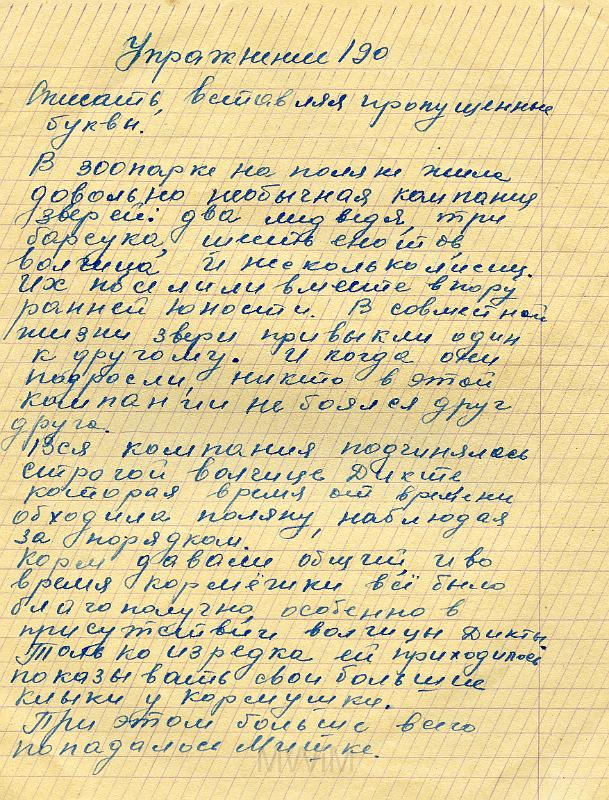 Упражнение 190
Списать, вставляя пропущенные
буквы.
В зоопарке на поляне жила
довольно необычная компания
зверей: два медведя, три
барсука, шесть енотов,
волчица, и несколько лисиц.
Их поселили вместе в пору
ранней юности. В совместной
жизни звери привыкли один
к другому. И когда они
подросли, никто в этой
компании не боялся друг
друга.
Вся компания подчинялась
строгой волчице Дикте
которая время от времени
обходила поляну, наблюдая
за порядком.
Корм давали общий, и во
время кормёжки всё было
благополучно, особенно в
присутствии волчицы Дикты.
Только изредка ей приходилось
показывать свои большие
клыки у кормушки.
При этом больше всего
попадалось Мишке.
MWIM